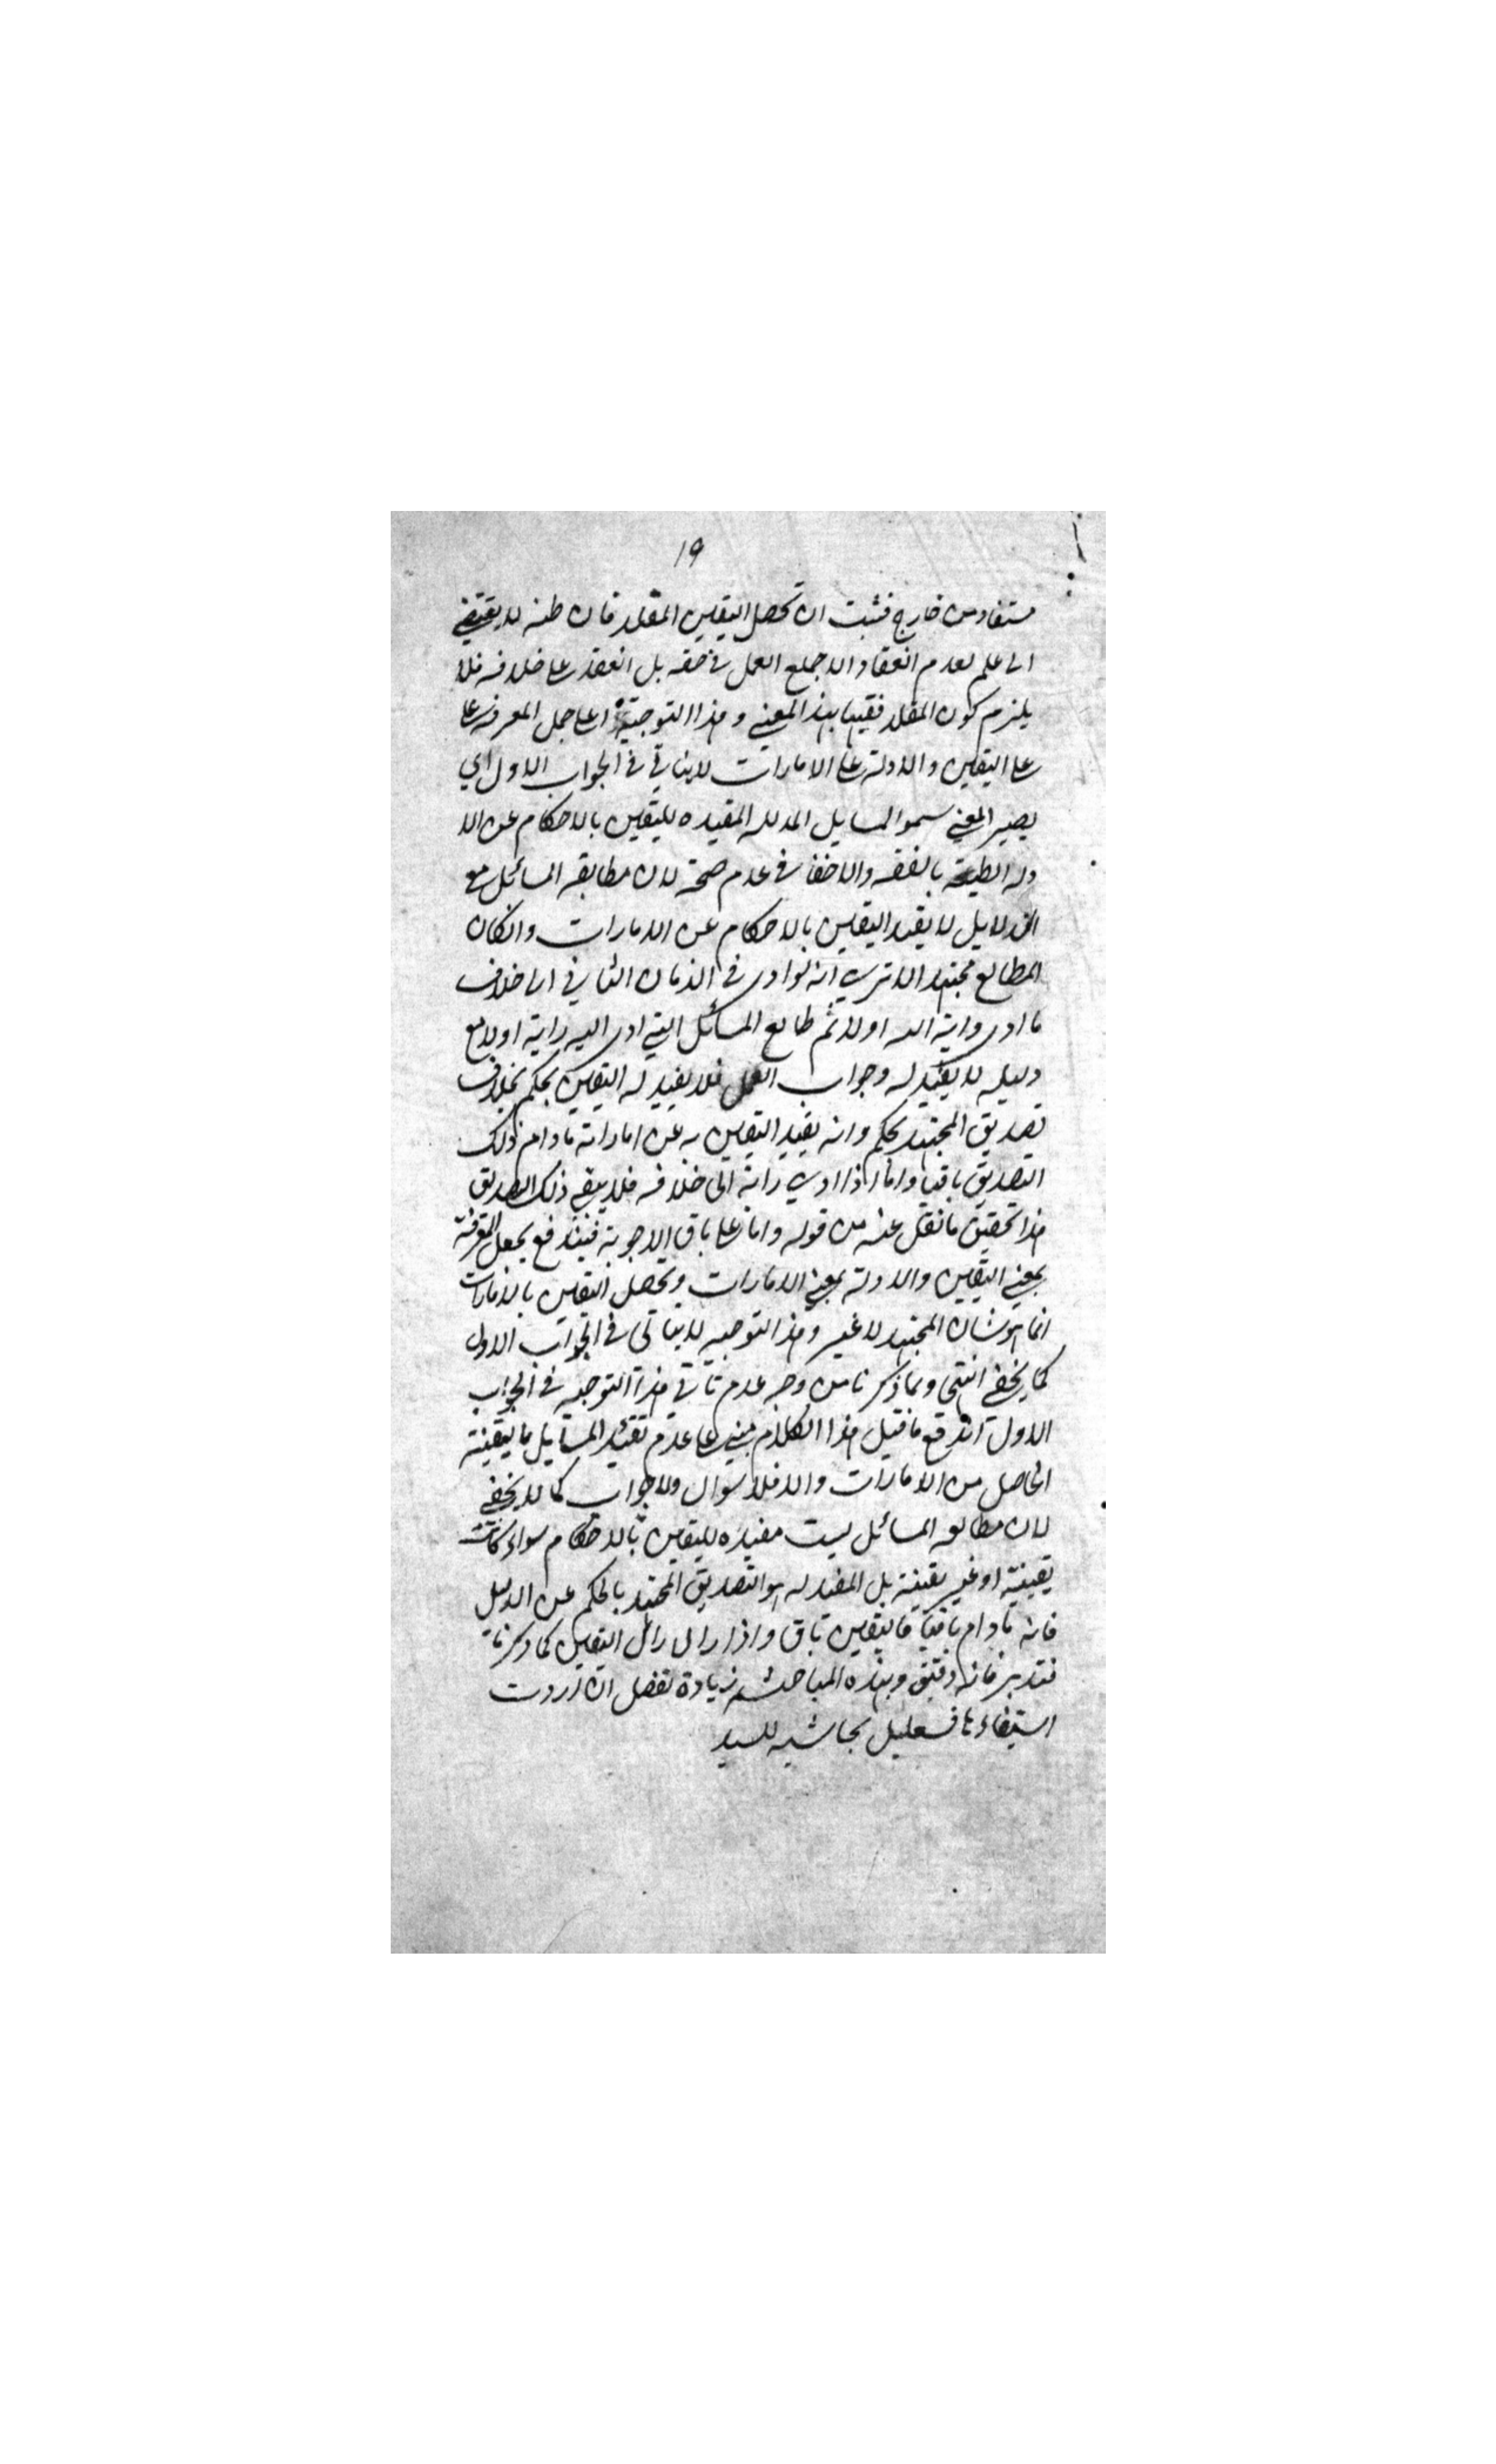 ١٩
مستفاد من خارج فثبت ان تحصل اليقين المقلد فان ظنه لا يقتضي
الى علم لعدم انعقاد الاجماع العمل في حقه بل انعقد على خلافه فلا
يلزم كون المقلد فقيها بهذ المعني و هذا التوجيه اعا حمل المعرفه على
على اليقين والادلة على الامارات لا يتاتي في الجواب الاول اي
يصير المعني سموا المسايل المدلله المفيده لليقين بالاحكام عن الا
دله الظنية بالفقه والاخفا في عدم صحة لان مطابقه المسائل مع
الدلايل لا يفيد اليقين بالاحكام عن الامارات وانكان
المطالع مجتهد الا تري انه لو ادى في الزمان الثاني الى خلاف
ما ادى رايه اليه اولا ثم طالع المسائل التي ادى اليه رايه اولا مع
دليله لا يفيد له وجواب العمل فلا يفيد له اليقين بحكم بخلاف
تصديق المجتهد بحكم وانه يفيد اليقين به عن اماراته مادام ذلك
التصديق باقيا واما اذا ادي رايه الى خلافه فلا يبقي ذلك التصديق
هذا تحقيق ما نقل عنه من قوله واما على باقى الاجوبة فيندفع بجعل المعرفة
بمعني اليقين والادلة بمعني الامارات وتحصل اليقين بالامارات
انما هو شان المجتهد لا غير وهذ التوجيه لا يتاتى في الجواب الاول
كما يخفي انتهى وبما ذكرنا من وجه عدم تاتي هذا التوجيه في الجواب
الاول اندفع ما قيل هذا الكلام مبني على عدم تقيد المسايل باليقينة
الحاصل من الامارات والا فلا سوال ولا جواب كما لا يخفي
لان مطالعه المسائل ليست مفيده لليقين بالاحكام سواء كانت
يقينية او غير يقينية بل المفيد له هو التصديق المجتهد بالحكم عن الدليل
فانه مادام باقيا فاليقين باق واذا زال زال اليقين كما ذكرنا
فتدبر فانه دقيق وبهذه المباحث زيادة تفصل ان اردت
استيفاءها فعليك بحاشيه للسيد